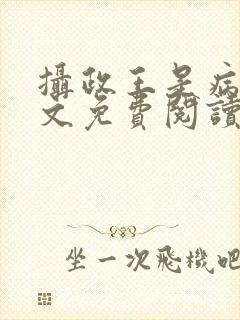 攝政王是病
文免費閱讀
坐一次飛機吧